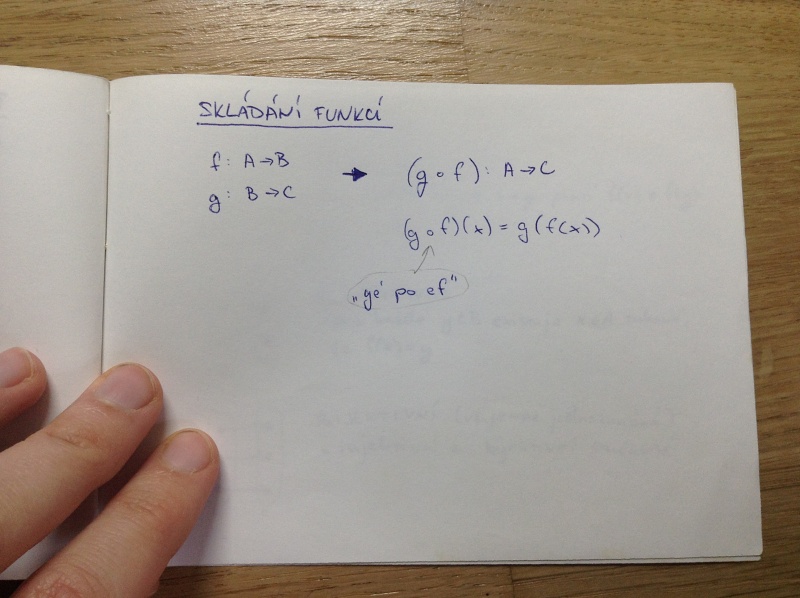 SKLÁDÁNÍ FUNKCÍ
f: A→B → (g∘f): A→C
g: B→C
(g∘f)(x) = g(f(x))
„gé po ef"